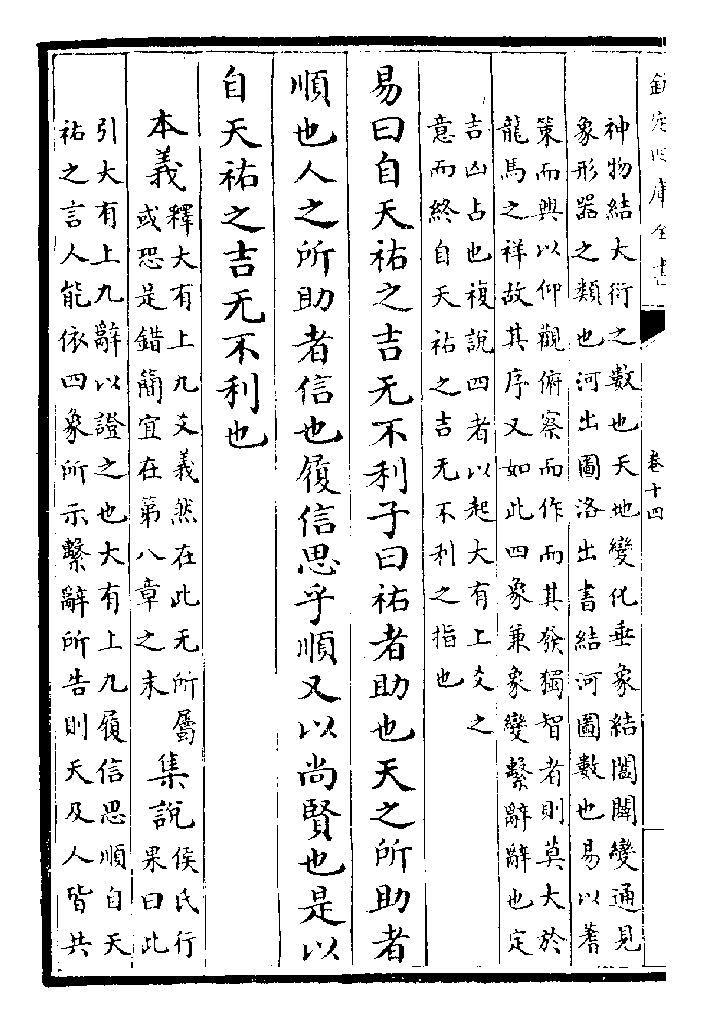 欽定四庫全書
卷十四
神物結大衍之數也天地變化垂象結闔闢變通見
象形器之類也河出圖洛出書結河圖數也易以蓍
策而興以仰觀俯察而作而其發獨智者則莫大於
龍馬之祥故其序又如此四象兼象變繫辭辭也定
吉凶占也複說四者以起大有上爻之
意而終自天祐之吉无不利之指也
易曰自天祐之吉无不利子曰祐者助也天之所助者
順也人之所助者信也履信思乎順又以尚賢也是以
自天祐之吉无不利也
本義釋大有上九爻義然在此无所屬
或恐是錯簡宜在第八章之末
集說侯氏行
果曰此
引大有上九辭以證之也大有上九履信思順自天
祐之言人能依四象所示繫辭所告則天及人皆共